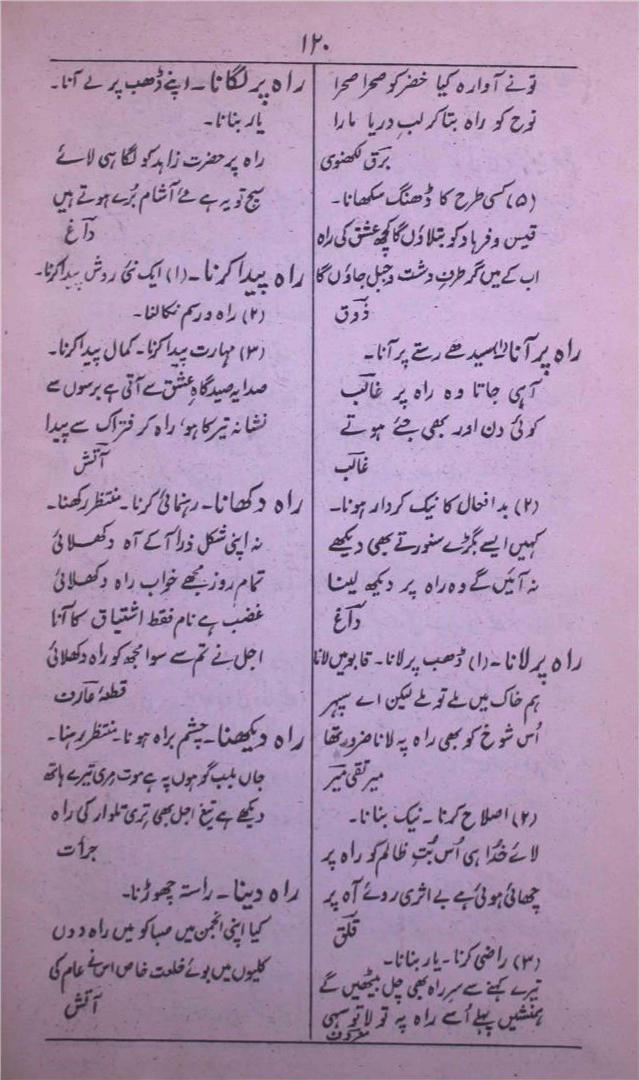 ۱۲۰
تونے آوارہ کیا خضر کو صحرا صحرا
نوح کو راہ بتا کر لبِ دریا مارا
برق لکھنوی
(۵) کسی طرح کا ڈھنگ سکھانا۔
قیس و فرہاد کو بتلاؤں گا کچھ عشق کی راہ
اب کے میں گر طرفِ دشت و جبل جاؤں گا
ذوق
راہ پر آنا (۱) سیدھے رستے پر آنا۔
آہی جاتا وہ راہ پر غالب
کوئی دن اور بھی جئے ہوتے
غالب
(۲) بدافعال کا نیک کردار ہونا۔
کہیں ایسے بگڑے سنورتے بھی دیکھے
نہ آئیں گے وہ راہ پر دیکھ لینا
داغ
راہ پر لانا۔ (۱) ڈھب پر لانا۔ قابو میں لانا
ہم خاک میں ملے تو ملے لیکن اے سپہر
اُس شوخ کو بھی راہ پہ لانا ضرور تھا
میر تقی میر
(۲) اصلاح کرنا۔ نیک بنانا۔
لائے خُدا ہی اُس بُتِ ظالم کو راہ پر
چھائی ہوئی ہے بے اثری روئے آہ پر
قلق
(۳) راضی کرنا۔ یار بنانا۔
تیرے کہنے سے سرِ راہ بھی چل بیٹھیں گے
ہمنشیں پہلے اُسے راہ پہ تو لا تو سہی
معروف
راہ پر لگانا۔ اپنے ڈھب پر لے آنا۔
یار بنانا۔
راہ پر حضرت زاہد کو لگا ہی لائے
سچ تو یہ ہے مے آشام بُرے ہوتے ہیں
داغ
راہ پیدا کرنا۔ (۱) ایک نئی روش پیدا کرنا۔
(۲) راہ و رسم نکالنا۔
(۳) مہارت پیدا کرنا۔ کمال پیدا کرنا۔
صدا یہ صیدگاہِ عشق سے آتی ہے برسوں سے
نشانہ تیر کا ہو، راہ کر فتراک سے پیدا
آتش
راہ دکھانا۔ رہنمائی کرنا۔ منتظر رکھنا۔
نہ اپنی شکل ذرا آکے آہ دکھلائی
تمام روز مجھے خواب راہ دکھلائی
غضب ہے نام فقط اشتیاق کا آنا
اجل نے تم سے سوا مجھ کو راہ دکھلائی
قطعۂ عارف
راہ دیکھنا۔ چشم براہ ہونا۔ منتظر رہنا۔
جاں بلب گو ہوں پہ ہے موت مری تیرے ہاتھ
دیکھے ہے تیغِ اجل بھی تری تلوار کی راہ
جرأت
راہ دینا۔ راستہ چھوڑنا۔
کیا اپنی انجمن میں صبا کو میں راہ دوں
کلیوں میں بوئے خلعت خاص اس نے عام کی
آتش